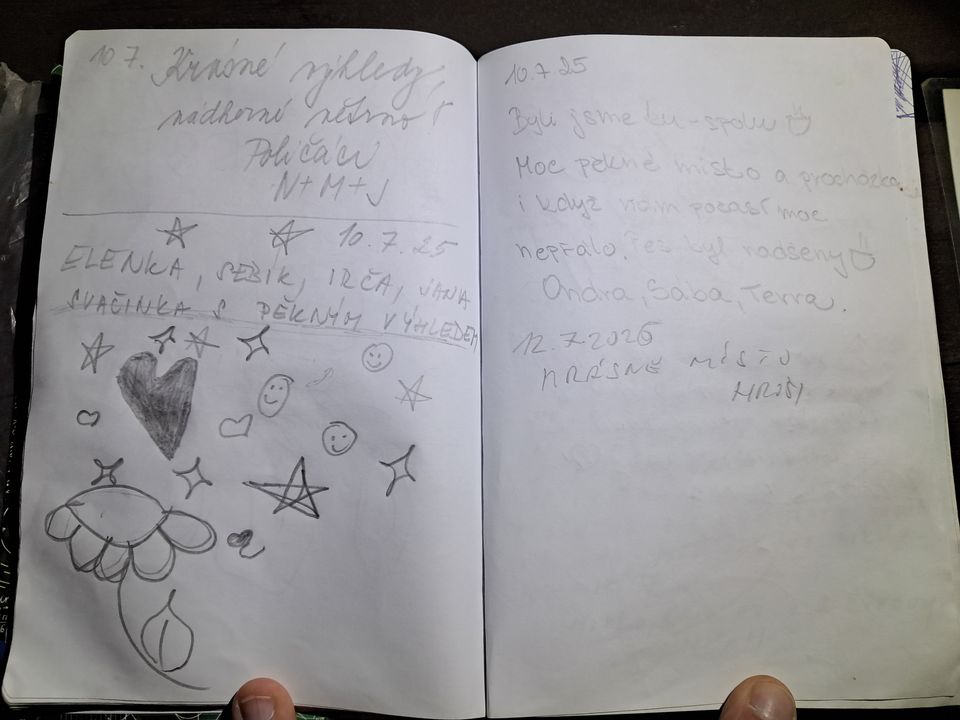 10 7. Krásné výhledy,
nádherné větrno!
Poličáci
N+M+J
10.7.25
ELENKA, SEBÍK, IRČA, JANA
SVAČINKA S PĚKNÝM VÝHLEDEM
10.7.25
Byli jsme tu - spolu
Moc pěkné místo a procházka,
i když nám počasí moc
nepřálo. Pes byl nadšený
Ondra, Sába, Terra.
12.7.2025
KRÁSNÉ MÍSTO